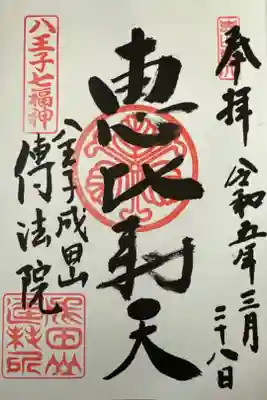 奉拝
令和五年三月
二十八日
恵比寿天
八王子七福神
八王子成田山
傳法院